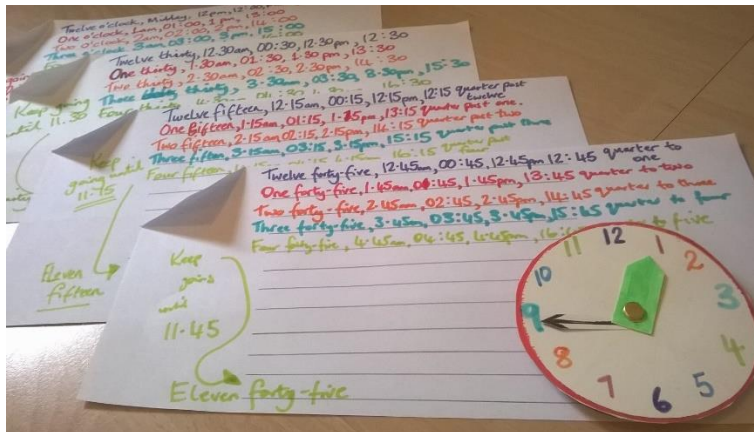 Twelve o'clock, Midday, 12pm, 12:00,
One o'clock, 1am, 01:00, 1pm, 13:00
Two o'clock, 2am, 02:00, 2pm, 14:00
Three o'clock, 3am, 03:00, 3pm, 15:00
Twelve thirty, 12.30am, 00:30, 12.30pm, 12:30
One thirty, 1.30am, 01:30, 1.30pm, 13:30
Two thirty, 2.30am, 02:30, 2.30pm, 14:30
Three thirty, 3.30am, 03:30, 3.30pm, 15:30
Four thirty
Keep
going
until 11.30
Twelve fifteen, 12.15am, 00:15, 12.15pm, 12:15 quarter past
twelve
One fifteen, 1.15am, 01:15, 1.15pm, 13:15 quarter past one.
Two fifteen, 2.15am 02:15, 2.15pm, 14:15 quarter past two
Three fifteen, 3.15am, 03:15, 3.15pm, 15:15 quarter past three
Four fifteen 16:15 quarter past
four
Keep
going until
11.15
Eleven
fifteen
Twelve forty-five, 12.45am, 00:45, 12.45pm 12:45 quarter to
one
One forty-five, 1.45am, 01:45, 1.45pm, 13:45 quarter to two
Two forty-five, 2.45am, 02:45, 2.45pm, 14:45 quarter to three
Three forty-five, 3.45am, 03:45, 3.45pm, 15:45 quarter to four
Four forty-five, 4.45am, 04:45, 4.45pm, to five
Keep
going
until
11.45
Eleven forty-five
12
1
2
3
4
5
6
7
8
9
10
11